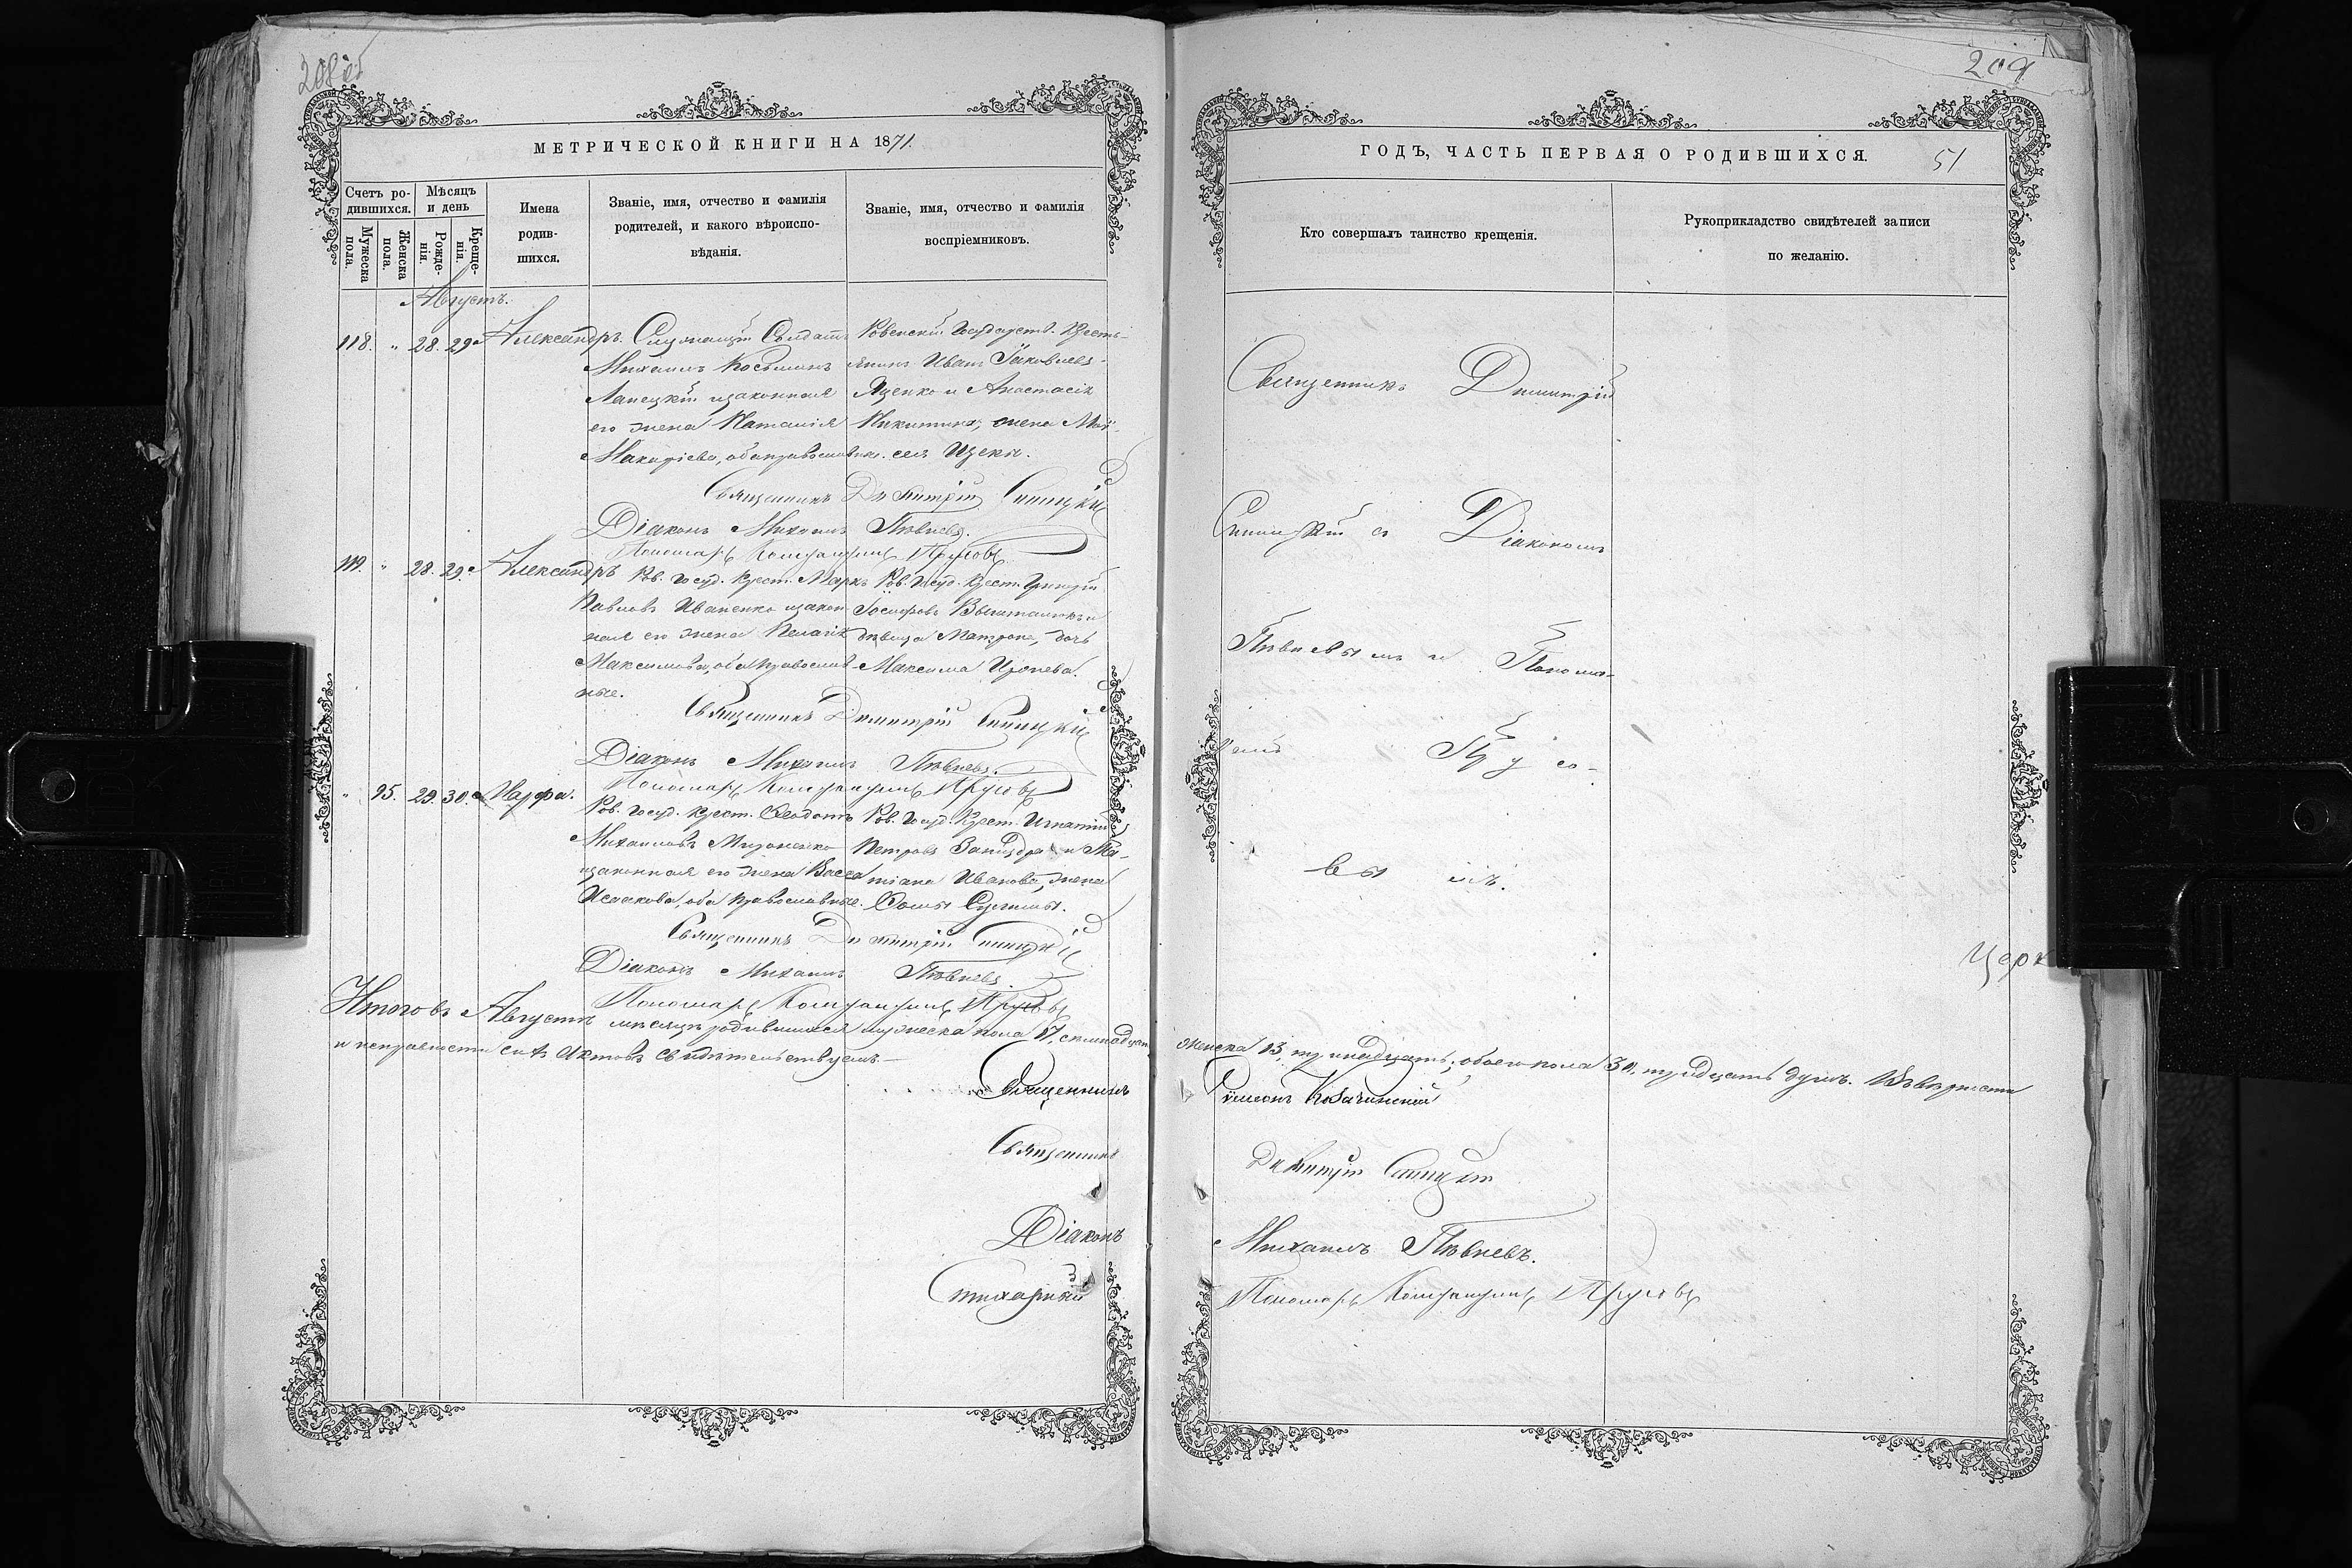 208 об
МЕТРИЧЕСКОЙ КНИГИ НА 1871.
Счетъ родившихся.
Мужеска пола.
Женска пола.
Мѣсяцъ и день
Рожденія.
Крещенія.
Имена родившихся.
Званіе, имя, отчество и фамилія родителей, и какого вѣроисповѣданія.
Званіе, имя, отчество и фамилія воспріемниковъ.
Августъ.
118. " 28. 29. Александръ.
Служащій Солдатъ
Михаилъ Косьминъ
Лапецкій и законная
его жена Наталія
Макаріева, оба православн.
Ровенскій Государств. Кресть-
янинъ Иванъ Іаковлевъ
Яценко и Анастасія
Никитина, жена
Священникъ Димитрій Синицкій
Діаконъ Михаилъ Пѣвневъ.
Пономарь Константинъ Прусовъ
119. " 28. 29. Александръ
Ров. Госуд. Крест. Маркъ
Павловъ Иваненко и закон
ная его жена Пелагія
Максимова, оба православ
ные.
Ров. Госуд. Крест. Григорій
Іосифовъ
девица Матрона, дочь
Максима
Священникъ Димитрій Синицкій
Діаконъ Михаилъ Пѣвневъ.
Пономарь Константинъ Прусовъ
" 95. 29. 30. Марфа.
Ров. Госуд. Крест. Ѳеодотъ
Михаиловъ Мироненко
и законная его жена Васса
Исаакова, оба православные.
Ров. Госуд. Крест. Игнатій
Петровъ и Та-
тіана Иванова, жена
Ѳомы
Священникъ Димитрій Синицкій
Діаконъ Михаилъ Пѣвневъ.
Пономарь Константинъ Прусовъ
Итого въ Августѣ мѣсяцѣ родившихся мужеска пола 17, семнадцать
и исправности сихъ актовъ свидѣтельствуемъ
Священникъ
Священникъ
Діаконъ
Стихарный
209
ГОДЪ, ЧАСТЬ ПЕРВАЯ О РОДИВШИХСЯ.
51
Кто совершалъ таинство крещенія.
Рукоприкладство свидѣтелей записи по желанію.
Священникъ Димитрій
Синицкій съ Діакономъ
Пѣвневымъ и Понома-
ремъ Прусо-
вымъ.
Церк
женска 13, тринадцать; обоего пола 30, тридцать душъ. Въ вѣрности
Симеонъ Козачинскій
Димитрій Синицкій
Михаилъ Пѣвневъ.
Пономарь Константинъ Прусовъ